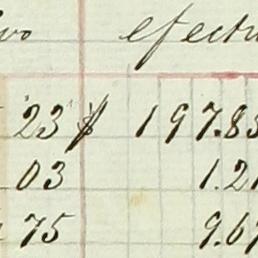 vo efectu
23 $ 197.83
03 1.21
75 9.67